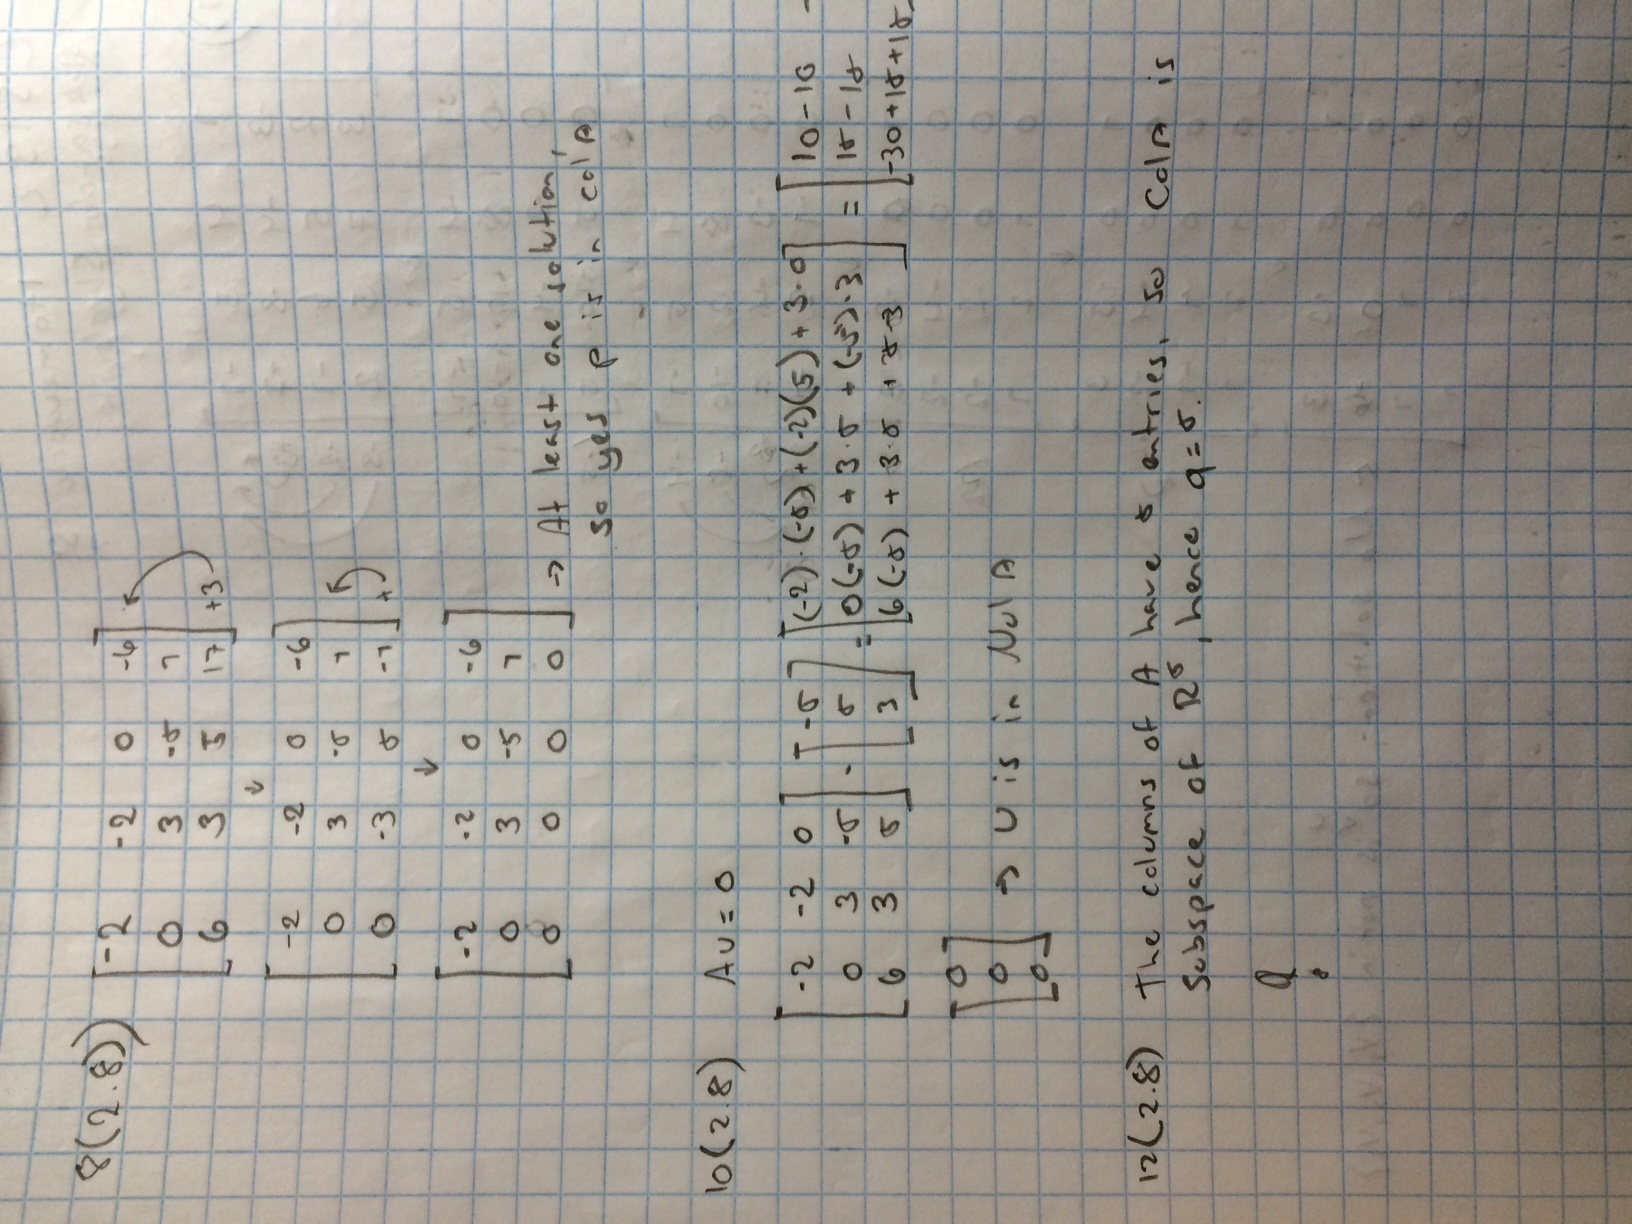 8(2.8))
-2 -2 0 -6
0 3 -5 7
6 3 5 17 +3
↓
-2 -2 0 -6
0 3 -5 7
0 -3 5 -7 +
↓
-2 -2 0 -6
0 3 -5 7
0 0 0 0 → At least one solution,
so yes p is in col A
10(2.8) Au = 0
[-2 -2 0] [-5] [(-2)·(-5)+(-2)(5)+3·0] [10-10
[0 3 -5] · [5] = [0(-5) + 3·5 + (-5)·3] = [15-15
[6 3 5] [3] [6(-5) + 3·5 + 5·3] [-30+15+15
0
0 → U is in Nul A
0
12(2.8) The columns of A have 5 entries, so Col A is
subspace of R⁵, hence q=5.